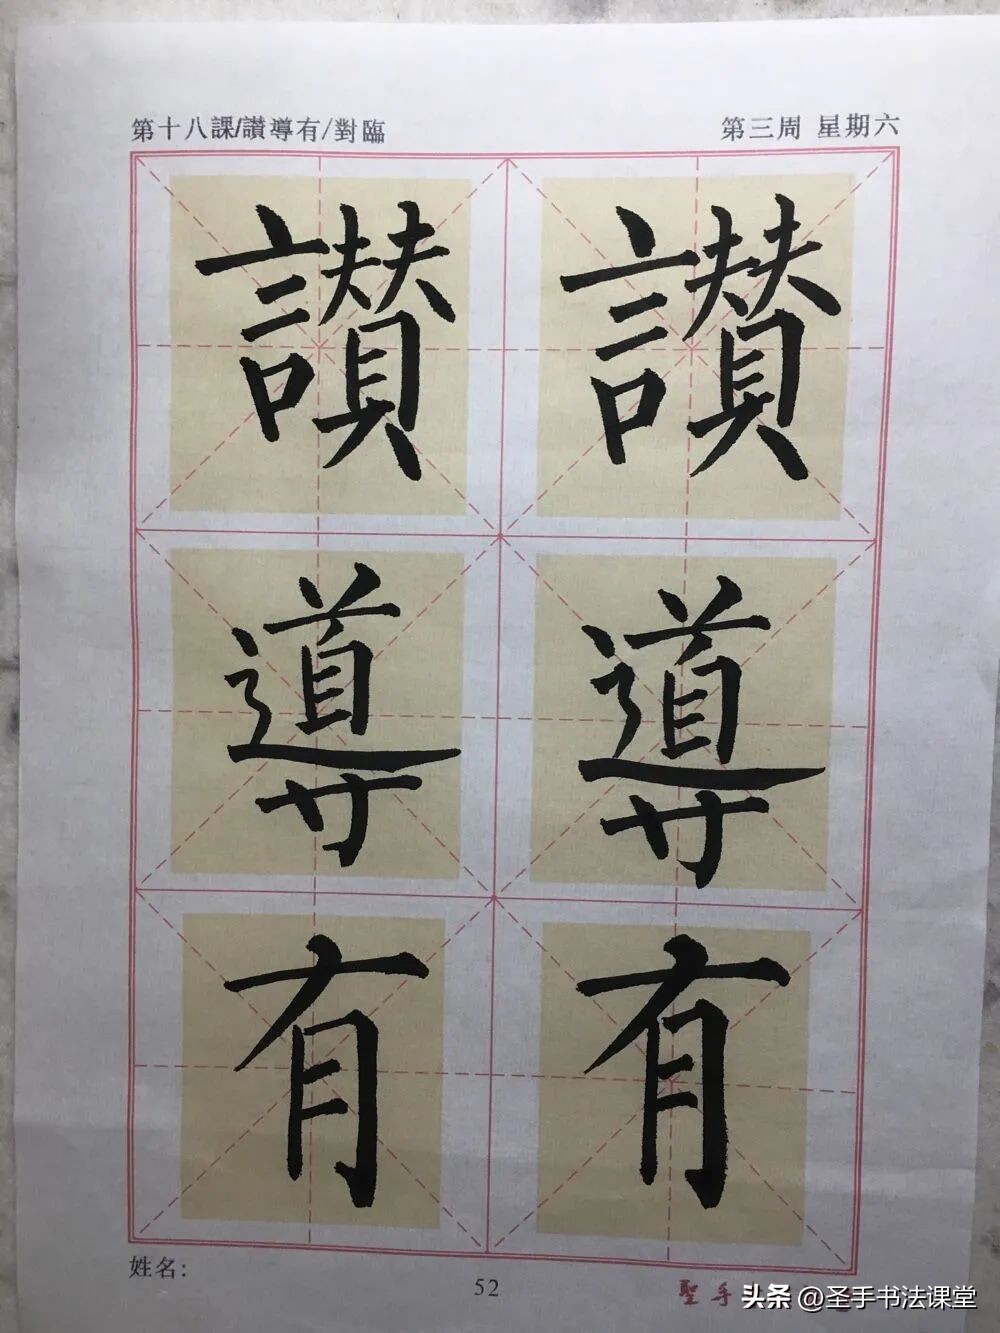 第十八課/讃導有/對臨 第三周 星期六
讃 讃
導 導
有 有
姓名: 52 聖手
头条 @圣手书法课堂